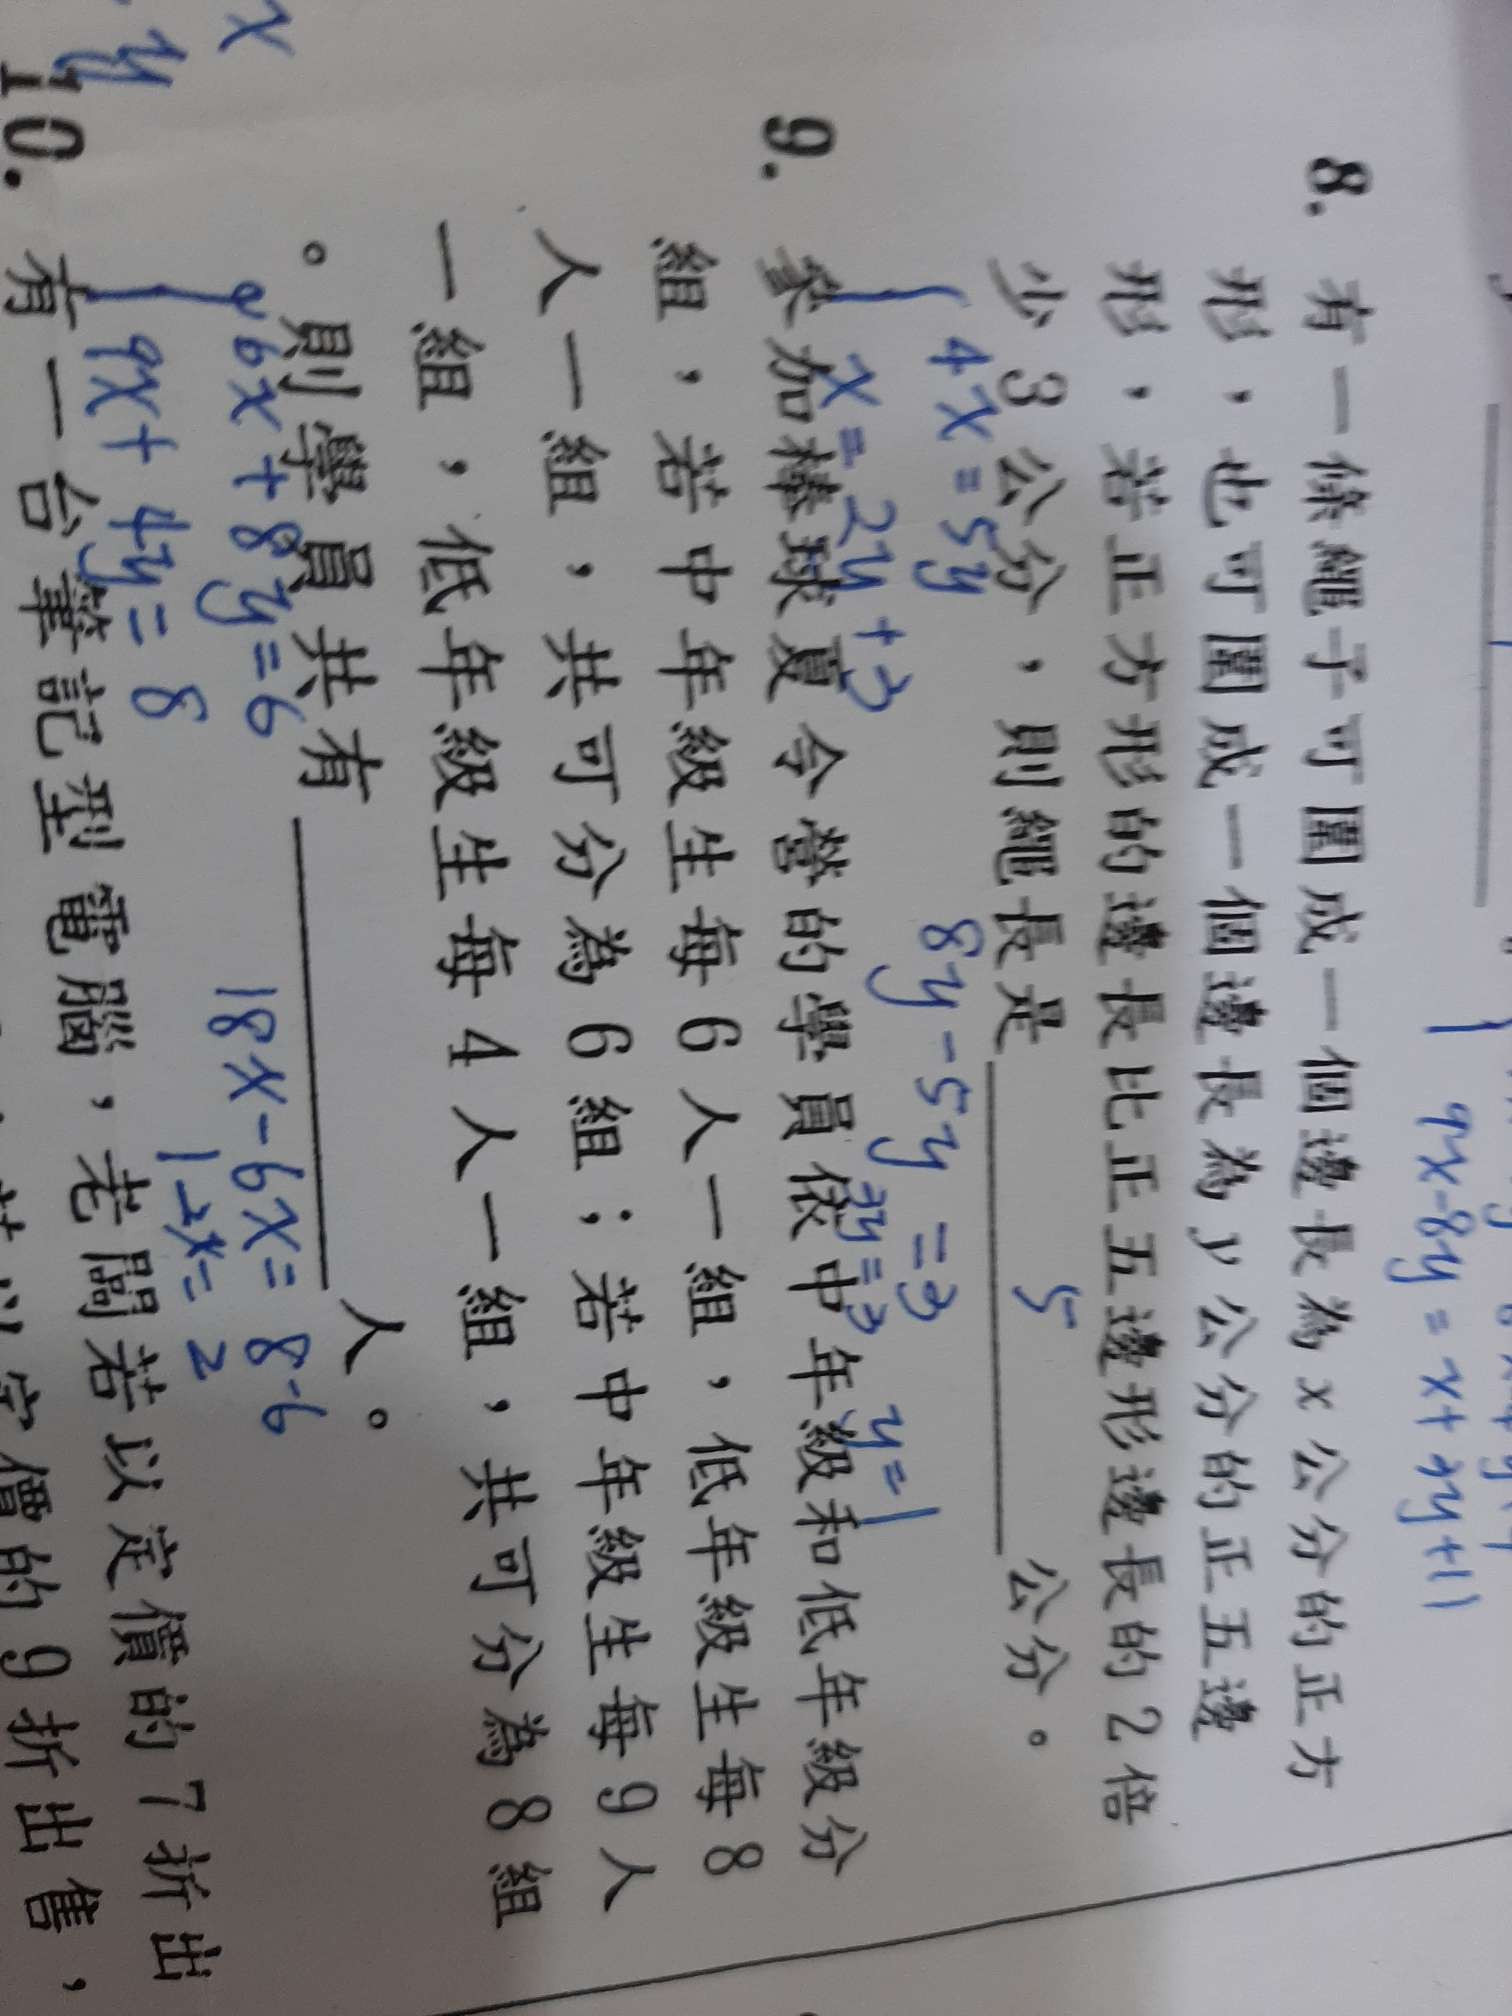 9x-8y=x+3y+11
8. 有一條繩子可圍成一個邊長為 x 公分的正方
形，也可圍成一個邊長為 y 公分的正五邊
形，若正方形的邊長比正五邊形邊長的2倍
少3公分，則繩長是 5 公分。
4x=5y 8y-5y=3
x=2y+3 3y=3 y=1
9. 參加棒球夏令營的學員依中年級和低年級分
組，若中年級生每6人一組，低年級生每8
人一組，共可分為6組；若中年級生每9人
一組，低年級生每4人一組，共可分為8組
。則學員共有 人。
6x+8y=6 18x-6x=8-6
9x+4y=8 12x=2
x
y
10. 有一台筆記型電腦，老闆若以定價的7折出
價的9折出售，